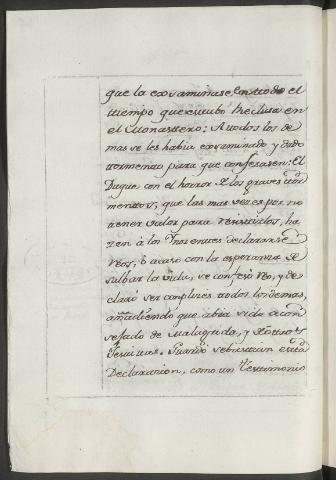 que la exsaminase, en ttodo el
ttiempo que estubo Reclusa en
el Monastterio: A ttodos los de
mas se les habia exsaminado y dado
ttormento para que confesasen: El
Duque con el horror de los graves ttor
mentos, que las mas veses por no
ttener valor para resistirlos, ha,,
zen à los Inosentes declararse
Reos, ò acaso con la esperanza de
salbar la vida, se confesò Reo, y de
clarò ser complises ttodos los demas,
añadiendo que abia sido acon
sejado de Malagrida, y Xotros
Jesuitas. Guardò Sebastian estta
Declarasion, como un Testimonio